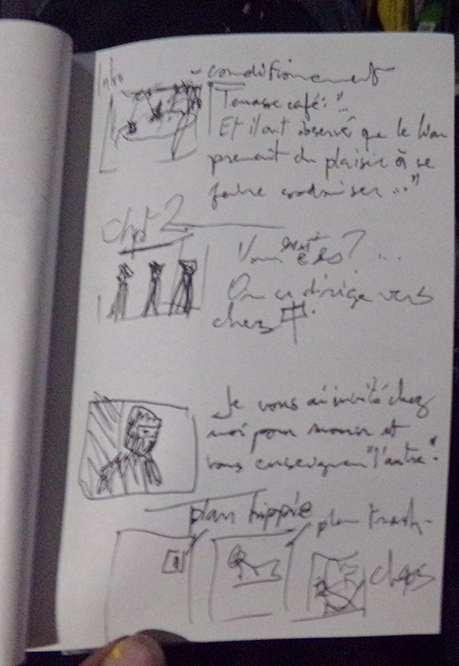 Intro
- conditionnement
Terrasse café: "...
Et ils ont observé que le
prenait du plaisir à se
faire sodomiser ..."
Chpt 2
Vous êtes? ...
On se dirige vers
chez
Je vous ai invité chez
moi pour mourir et
vous enseigner "l'autre".
plan hippie
plan trash